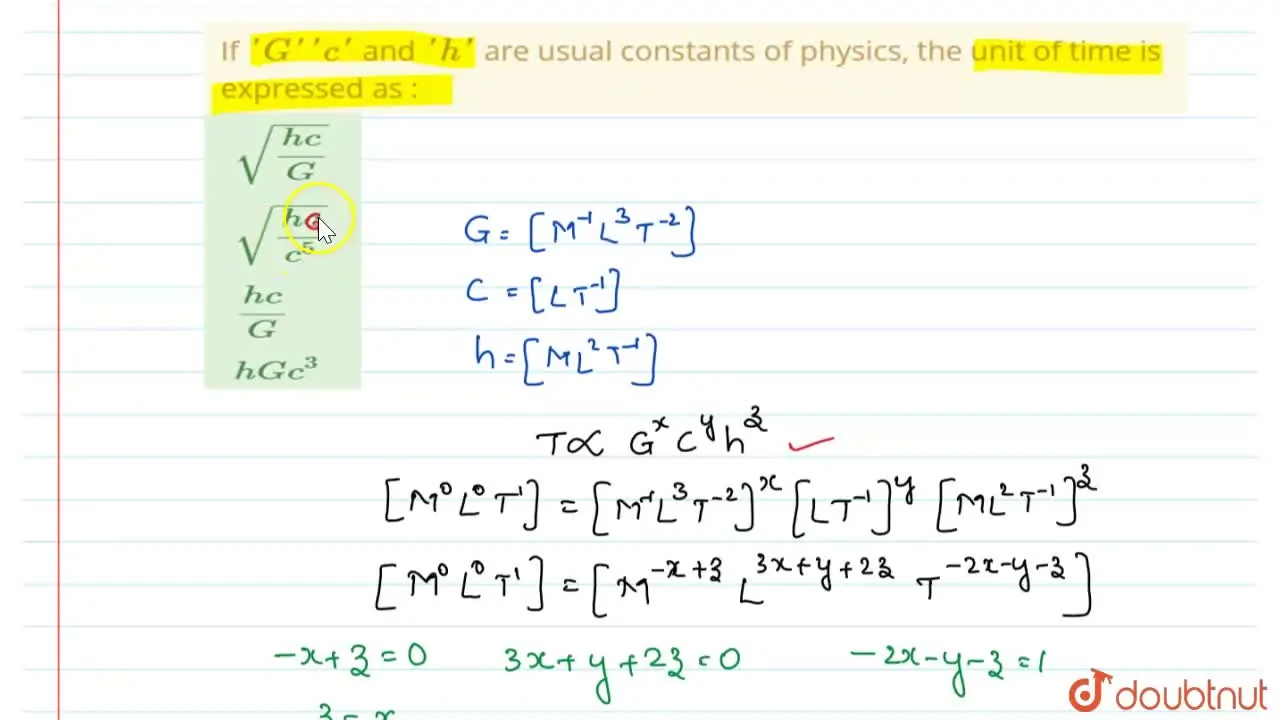 If 'G' 'c' and 'h' are usual constants of physics, the unit of time is
expressed as :
√(hc/G)
√(hG/c⁵)
hc/G
hGc³
G = [M⁻¹L³T⁻²]
C = [LT⁻¹]
h = [ML²T⁻¹]
T ∝ Gˣ Cʸ hᶻ
[M⁰L⁰T¹] = [M⁻¹L³T⁻²]ˣ [LT⁻¹]ʸ [ML²T⁻¹]ᶻ
[M⁰L⁰T¹] = [M^(-x+z) L^(3x+y+2z) T^(-2x-y-z)]
-x+z=0 3x+y+2z=0 -2x-y-z=1
z = x
doubtnut